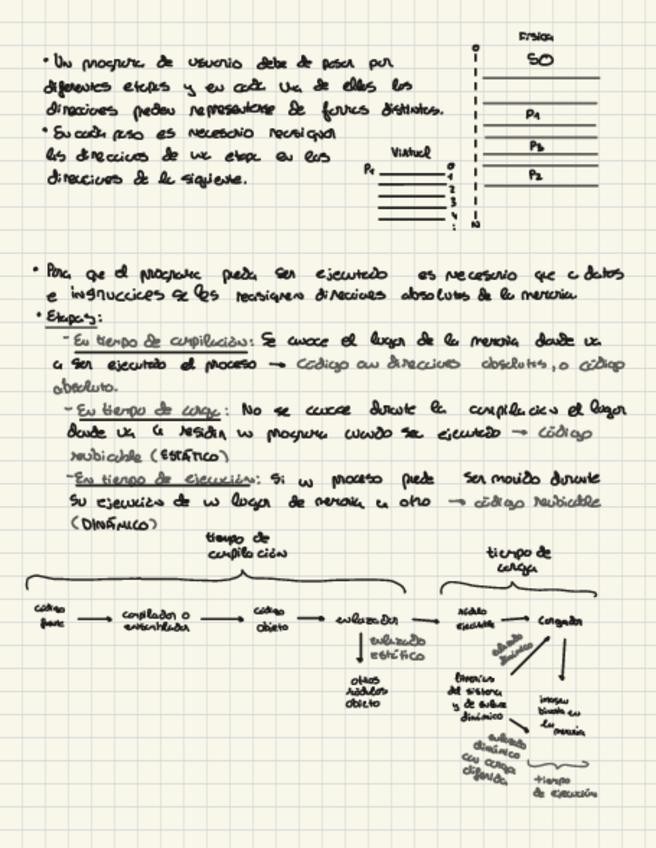 • Un programa de usuario debe de pasar por
diferentes etapas y en cada una de ellas las
direcciones pueden representarse de formas distintas.
• En cada paso es necesario reasignar
las direcciones de una etapa en las
direcciones de la siguiente.
Virtual
P1
0
1
2
3
4
:
Física
0
SO
P1
P3
P2
N
• Para que el programa pueda ser ejecutado es necesario que a datos
e instrucciones se les reasignen direcciones absolutas de la memoria
• Etapas:
- En tiempo de compilación: Se conoce el lugar de la memoria donde va
a ser ejecutado el proceso → código con direcciones absolutas, o código
absoluto.
- En tiempo de carga: No se conoce durante la compilación el lugar
donde va a residir un programa cuando sea ejecutado → código
reubicable (ESTÁTICO)
- En tiempo de ejecución: Si un proceso puede ser movido durante
su ejecución de un lugar de memoria a otro → código reubicable
(DINÁMICO)
tiempo de
compilación
tiempo de
carga
código
fuente
compilador o
ensamblador
código
objeto
enlazador
módulo
ejecutable
cargador
enlazado
estático
otros
módulos
objeto
enlazado
dinámico
librerías
del sistema
y de enlace
dinámico
imagen
binaria en
la memoria
enlazado
dinámico
con carga
diferida
tiempo
de ejecución